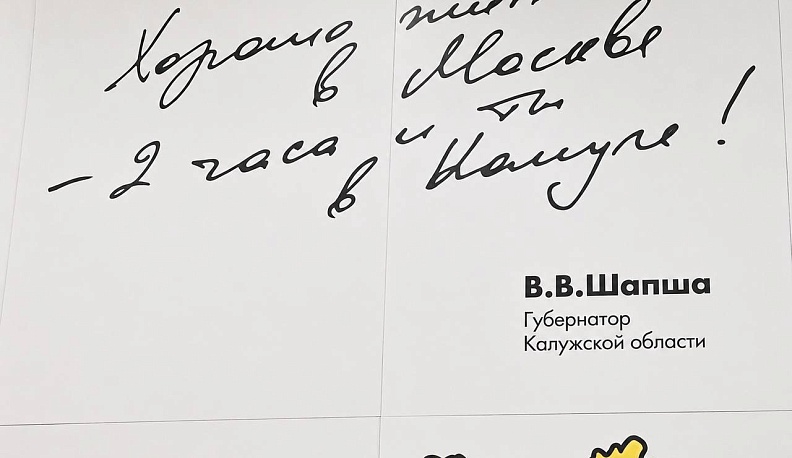 Хорошо жить
в Москве
- 2 часа и ты
в Калуге!
В.В.Шапша
Губернатор
Калужской области